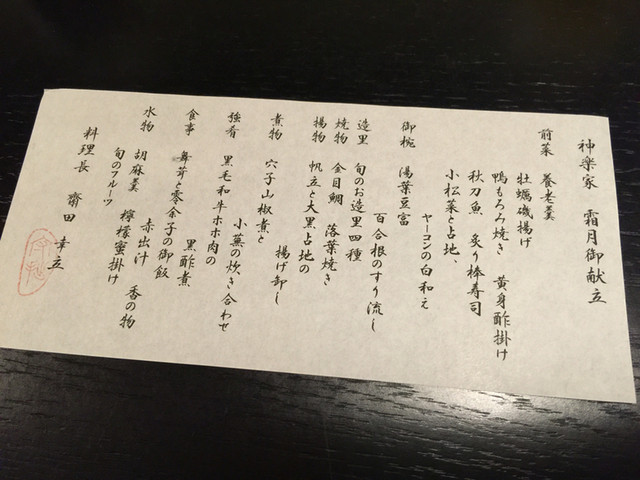 神楽家　霜月御献立
前菜　養老羹
牡蠣磯揚げ
鴨もろみ焼き　黄身酢掛け
秋刀魚　炙り棒寿司
小松菜と占地、
ヤーコンの白和え
御椀　湯葉豆富
百合根のすり流し
造里　旬のお造里四種
焼物　金目鯛　落葉焼き
揚物　帆立と大黒占地の
揚げ卸し
煮物　穴子山椒煮と
小蕪の炊き合わせ
強肴　黒毛和牛ホホ肉の
黒酢煮
食事　舞茸と零余子の御飯
赤出汁　香の物
水物　胡麻羹　檸檬蜜掛け
旬のフルーツ
料理長　齋田　幸立